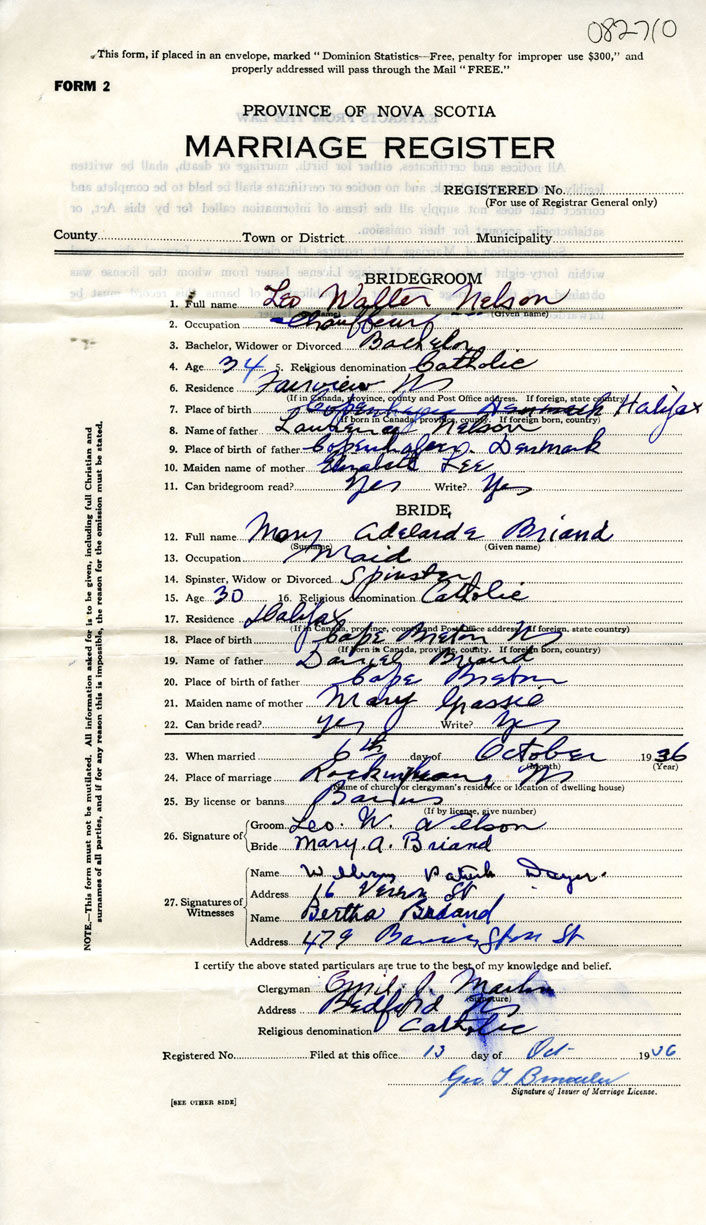 082710
This form, if placed in an envelope, marked "Dominion Statistics—Free, penalty for improper use $300," and
properly addressed will pass through the Mail "FREE."
FORM 2
PROVINCE OF NOVA SCOTIA
MARRIAGE REGISTER
REGISTERED No.
(For use of Registrar General only)
County Town or District Municipality
BRIDEGROOM
1. Full name Leo Walter Nelson
(Given name)
2. Occupation Chauffeur
3. Bachelor, Widower or Divorced Bachelor
4. Age 34 5. Religious denomination Catholic
6. Residence Fairview NS
(If in Canada, province, county and Post Office address. If foreign, state country)
7. Place of birth Copenhagen Denmark Halifax
(If born in Canada, province, county. If foreign born, country)
8. Name of father Lawrence Nelson
9. Place of birth of father Copenhagen Denmark
10. Maiden name of mother Elizabeth Lee
11. Can bridegroom read? Yes Write? Yes
BRIDE
12. Full name Mary Adelaide Briand
(Surname) (Given name)
13. Occupation Maid
14. Spinster, Widow or Divorced Spinster
15. Age 30 16. Religious denomination Catholic
17. Residence Halifax
(If in Canada, province, county and Post Office address. If foreign, state country)
18. Place of birth Cape Breton NS
(If born in Canada, province, county. If foreign born, country)
19. Name of father Daniel Briand
20. Place of birth of father Cape Breton
21. Maiden name of mother Mary Grassie
22. Can bride read? Yes Write? Yes
23. When married 6th day of October 1936
(Month) (Year)
24. Place of marriage Rockingham, NS
(Name of church or clergyman's residence or location of dwelling house)
25. By license or banns Banns
(If by license, give number)
26. Signature of Groom Leo. W. Nelson
Bride Mary. A. Briand
27. Signatures of Witnesses
Name William Patrick Dwyer.
Address 16 Vernon St
Name Bertha Briand
Address 479 Barrington St
I certify the above stated particulars are true to the best of my knowledge and belief.
Clergyman Emil J. Martin
(Signature)
Address Bedford NS
Religious denomination Catholic
Registered No. Filed at this office 13 day of Oct 1936
Geo. T.
Signature of Issuer of Marriage License.
[SEE OTHER SIDE]
NOTE.—This form must not be mutilated. All information asked for is to be given, including full Christian and
surnames of all parties, and if for any reason this is impossible, the reason for the omission must be stated.